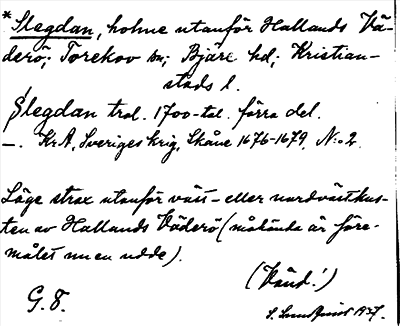 * Slegdan, holme utanför Hallands Vä-
derö; Torekov sn; Bjäre hd; Kristian-
stads l.
Slegdan trol. 1700-tal. förra del.
—. KrA, Sveriges krig, Skåne 1676-1679, N:o 2.
Läge strax utanför väst- eller nordvästkus-
ten av Hallands Väderö (målända är före-
målet nu en udde).
(Vänd!)
G. 8.
1937.